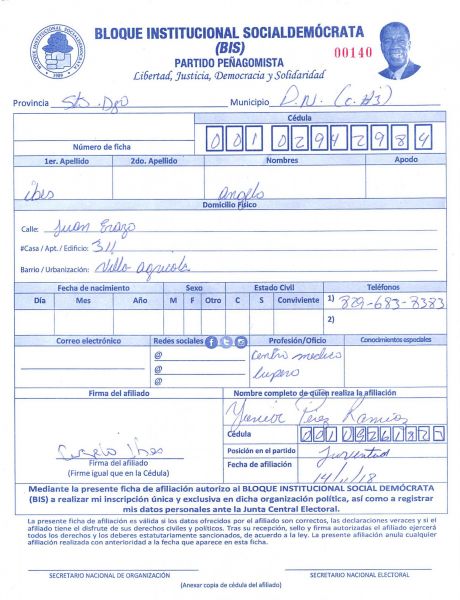 BLOQUE INSTITUCIONAL SOCIALDEMÓCRATA
(BIS)
00140
PARTIDO PEÑAGOMISTA
Libertad, Justicia, Democracia y Solidaridad
Provincia Sto. Dgo Municipio D.N. (C. #3)
Cédula
Número de ficha 001 0294298 4
1er. Apellido 2do. Apellido Nombres Apodo
ibes Angelo
Domicilio Físico
Calle: Juan Erazo
#Casa / Apt. / Edificio: 311
Barrio / Urbanización: Villa Agricola
Fecha de nacimiento Sexo Estado Civil Teléfonos
Día Mes Año M F Otro C S Conviviente 1) 829-683-8383
2)
Correo electrónico Redes sociales Profesión/Oficio Conocimientos especiales
@ centro medico
@ lupero
@
Firma del afiliado Nombre completo de quien realiza la afiliación
Yunior Pérez Ramirez
Cédula
Angelo Ibes Posición en el partido Juventud
Firma del afiliado Fecha de afiliación 14/11/18
(Firme igual que en la Cédula)
Mediante la presente ficha de afiliación autorizo al BLOQUE INSTITUCIONAL SOCIAL DEMÓCRATA
(BIS) a realizar mi inscripción única y exclusiva en dicha organización política, así como a registrar
mis datos personales ante la Junta Central Electoral.
La presente ficha de afiliación es válida si los datos ofrecidos por el afiliado son correctos, las declaraciones veraces y si el
afiliado tiene el disfrute de sus derechos civiles y políticos. Tras su recepción, sello y firma autorizadas el afiliado ejercerá
todos los derechos y los deberes estatutariamente sancionados, de acuerdo a la ley. La presente afiliación anula cualquier
afiliación realizada con anterioridad a la fecha que aparece en esta ficha.
SECRETARIO NACIONAL DE ORGANIZACIÓN SECRETARIO NACIONAL ELECTORAL
(Anexar copia de cédula del afiliado)